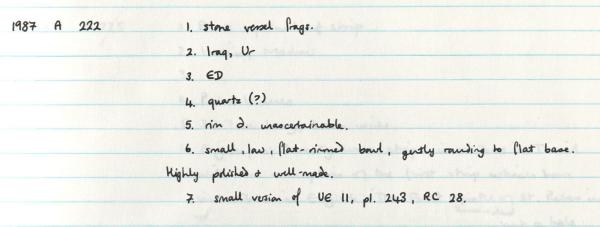 1987 A 222 1. stone vessel frags.
2. Iraq, Ur
3. ED
4. quartz (?)
5. rim d. unascertainable.
6. small, low, flat-rimmed bowl, gently rounding to flat base.
Highly polished & well-made.
7. small version of UE 11, pl. 243, RC 28.